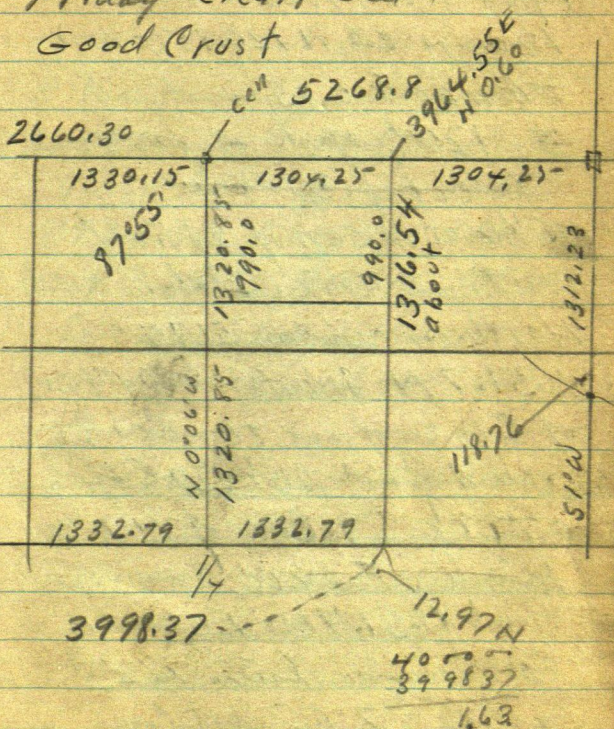 Good Crust
cen 5268.8 3964.55E
N 0.60
2660.30
1330.15 1304.25 1304.25
87°55'
1320.85
990.0
990.0
1316.54
about
1312.23
N 0°06'W
1320.85
118.76
S1°W
1332.79 1332.79
1/4
3998.37
12.97N
40000
399837
1.63